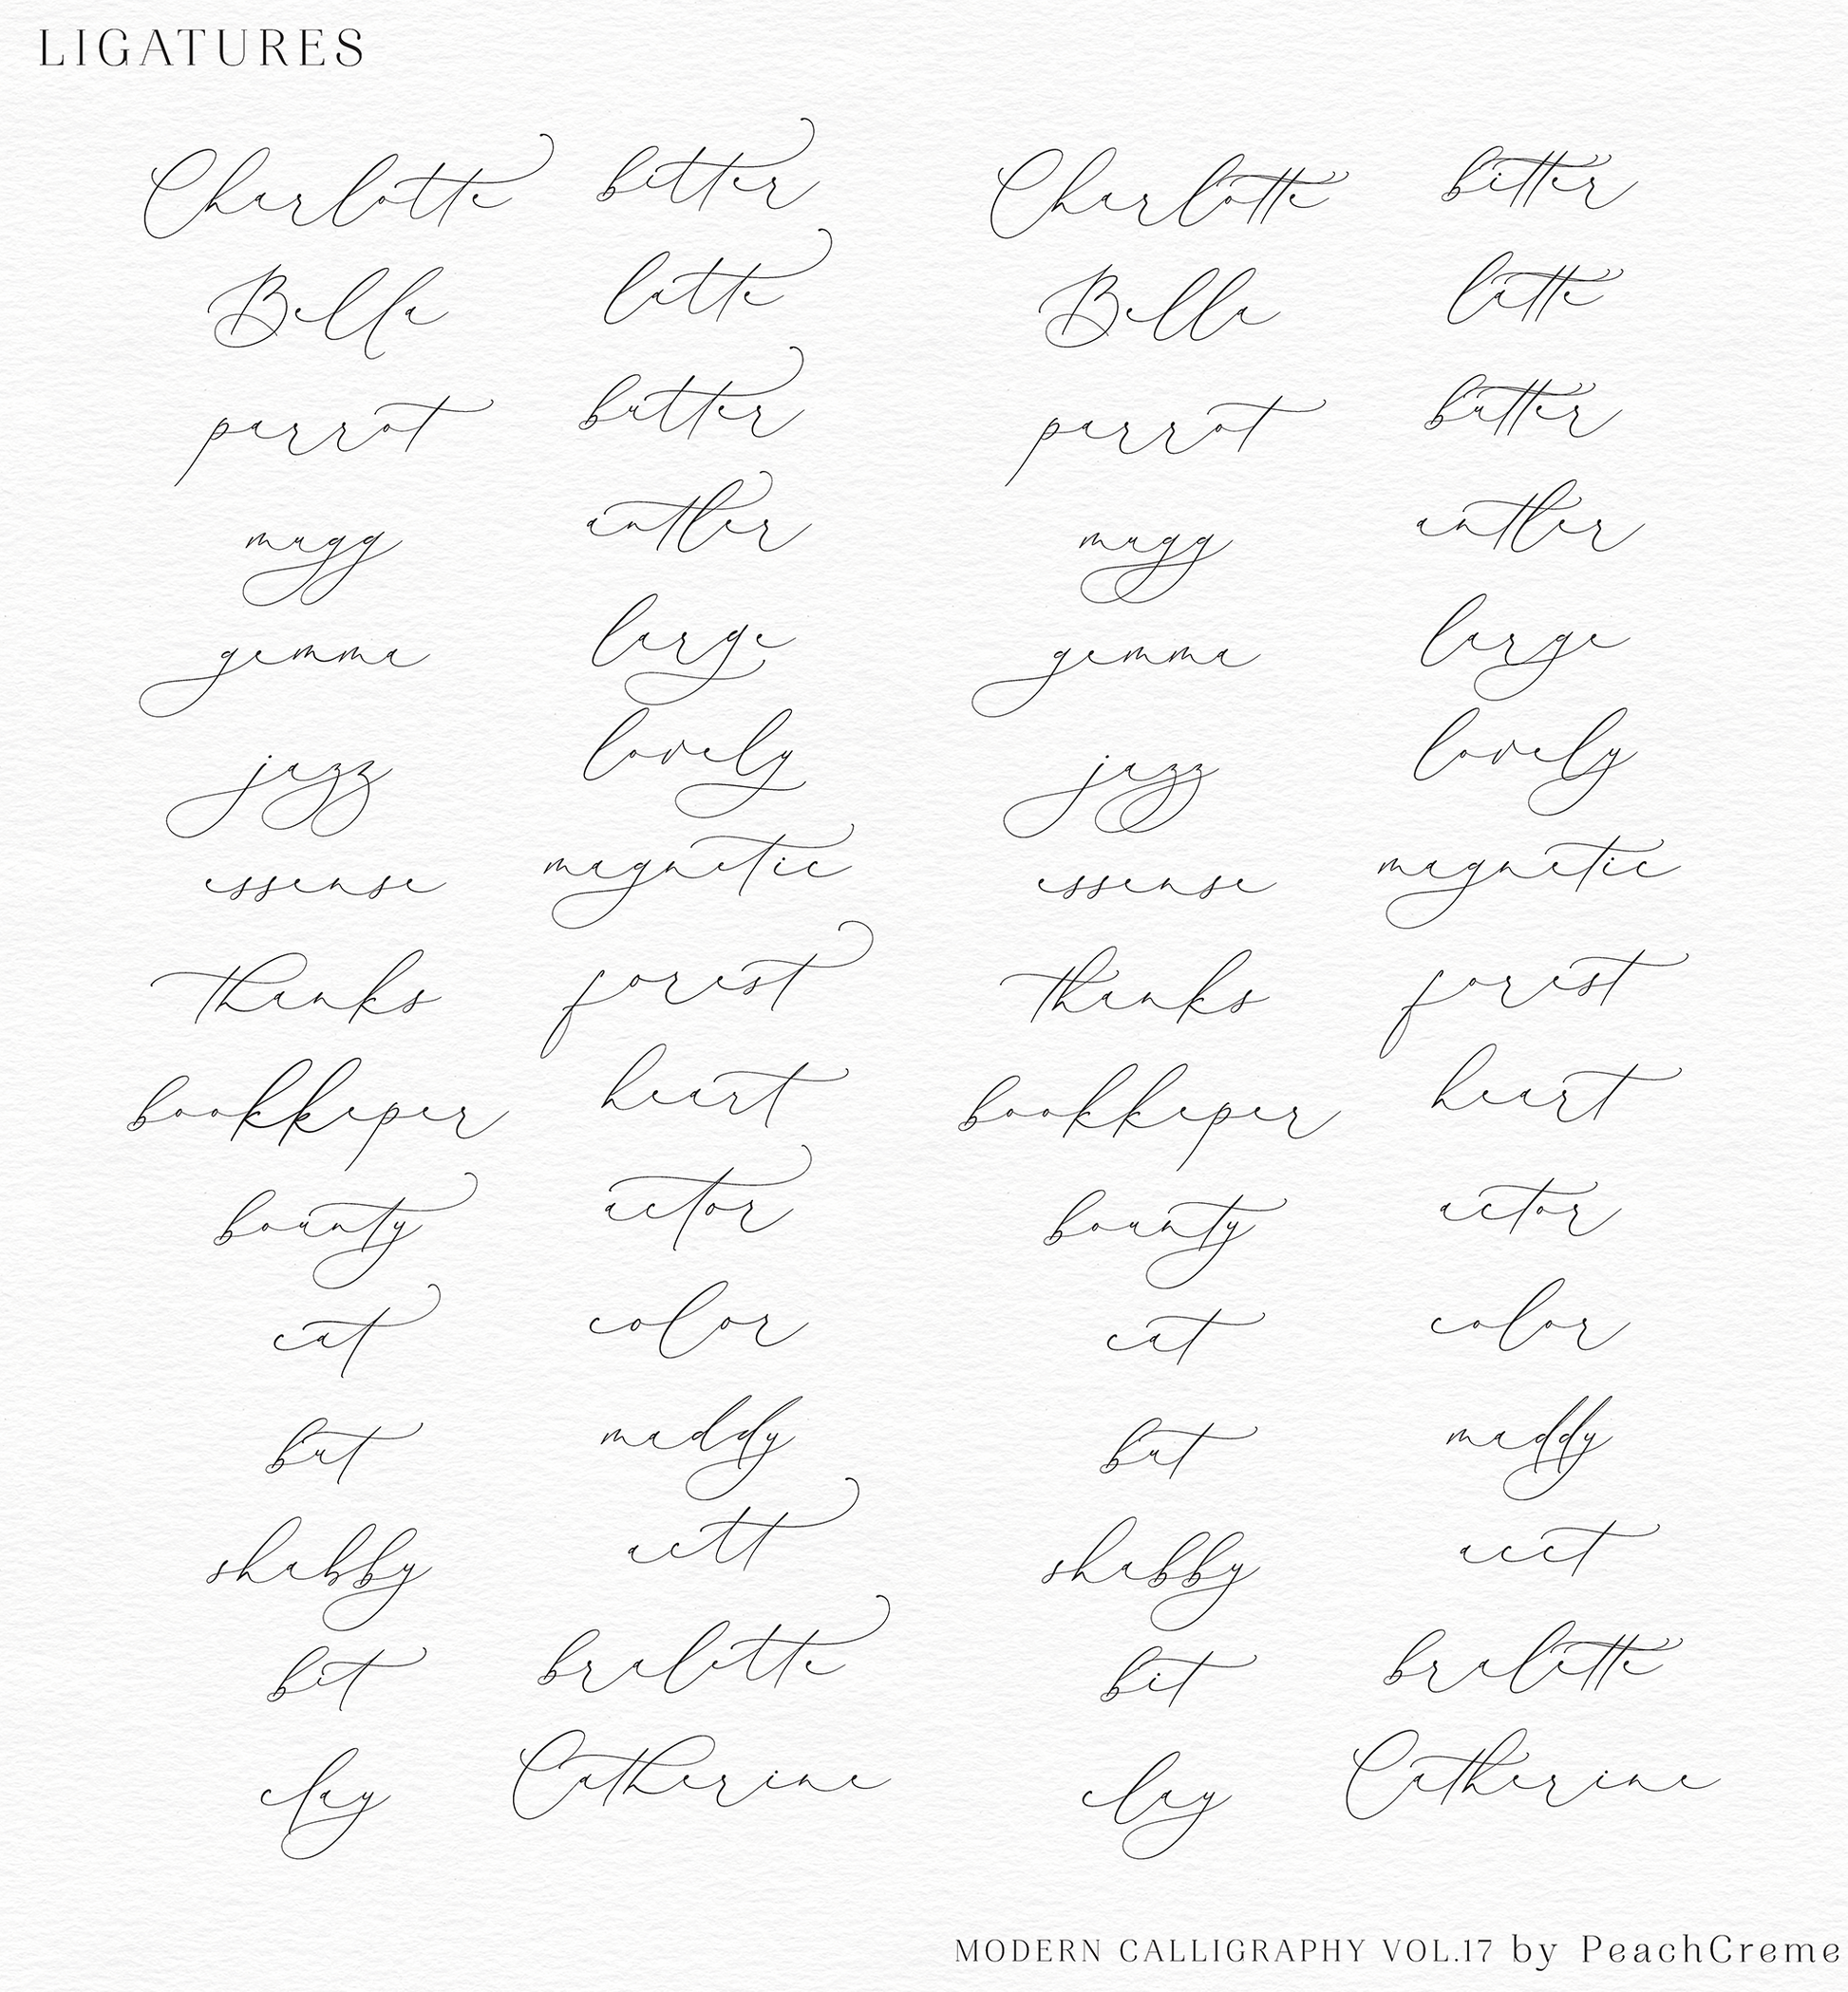 LIGATURES
Charlotte bitter Charlotte bitter
Bella latte Bella latte
parrot butter parrot butter
mugg antler mugg antler
gemma large gemma large
jazz lovely jazz lovely
essense magnetic essense magnetic
thanks forest thanks forest
bookkeper heart bookkeper heart
bounty actor bounty actor
cat color cat color
but maddy but maddy
shabby actt shabby acct
bit bralette bit bralette
clay Catherine clay Catherine
MODERN CALLIGRAPHY VOL.17 by PeachCreme